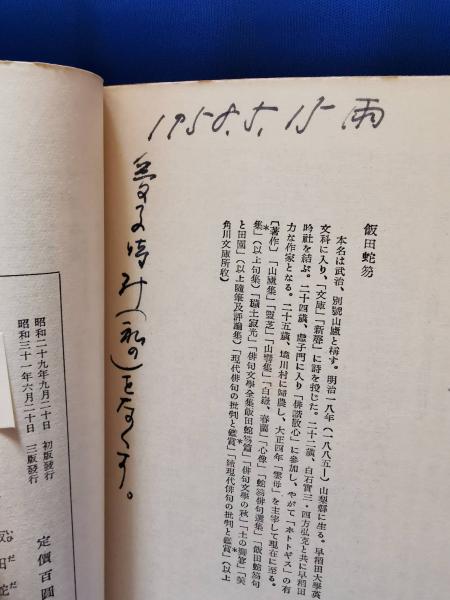 1958.5.15 雨
愛する時計(私の)をなくす。
飯田蛇笏
本名は武治、別號山廬と稱す。明治一八年(一八八五―)山梨縣に生る。早稻田大學英
文科に入り、「文庫」「新聲」に詩を投じた。二十二歳、白石實三・四方弘克と共に早稻田
吟社を結ぶ。二十四歳、虚子門に入り「俳諧散心」に參加し、やがて「ホトトギス」の有
力な作家となる。二十五歳、境川村に歸農し、大正四年「雲母」を主宰して現在に至る。
〔著作〕「山廬集」「靈芝」「山響集」「白嶽、春蘭」「心像」「蛇笏俳句選集」「飯田蛇笏句
集」(以上句集)「穢土寂光」「俳句文學全集飯田蛇笏篇」「俳句文學の秋」「土の饗宴」「美
と田園」(以上隨筆及評論集)「現代俳句の批判と鑑賞」「續現代俳句の批判と鑑賞」(以上
角川文庫所收)
昭和二十九年九月二十日 初版發行
昭和三十一年六月二十日 三版發行
定價百圓
田蛇